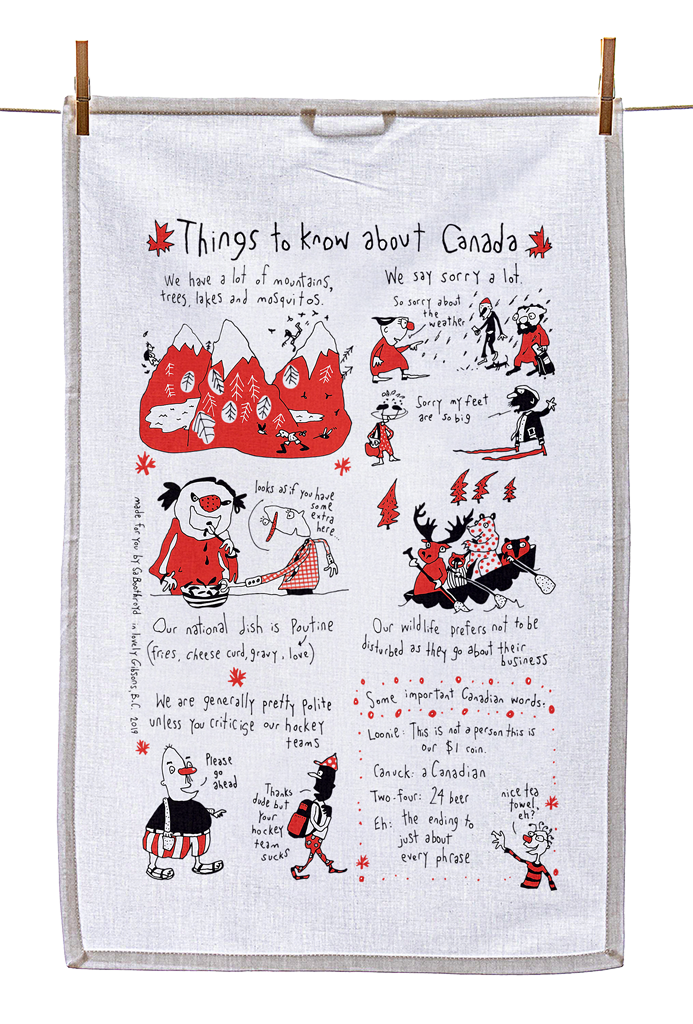 Things to know about Canada
We have a lot of mountains,
trees, lakes and mosquitos.
We say sorry a lot.
So sorry about
the
weather
Sorry my feet
are so big
looks as if you have
some
extra
here...
made for you by SaBoothroyd in lovely Gibsons, B.C. 2019
Our national dish is Poutine
(fries, cheese curd, gravy, love)
Our wildlife prefers not to be
disturbed as they go about their
business
We are generally pretty polite
unless you criticise our hockey
teams
Please
go
ahead
Thanks
dude but
your
hockey
team
sucks
Some important Canadian words:
Loonie: This is not a person this is
our $1 coin.
Canuck: a Canadian
Two-four: 24 beer
Eh: the ending to
just about
every phrase
nice tea
towel,
eh?